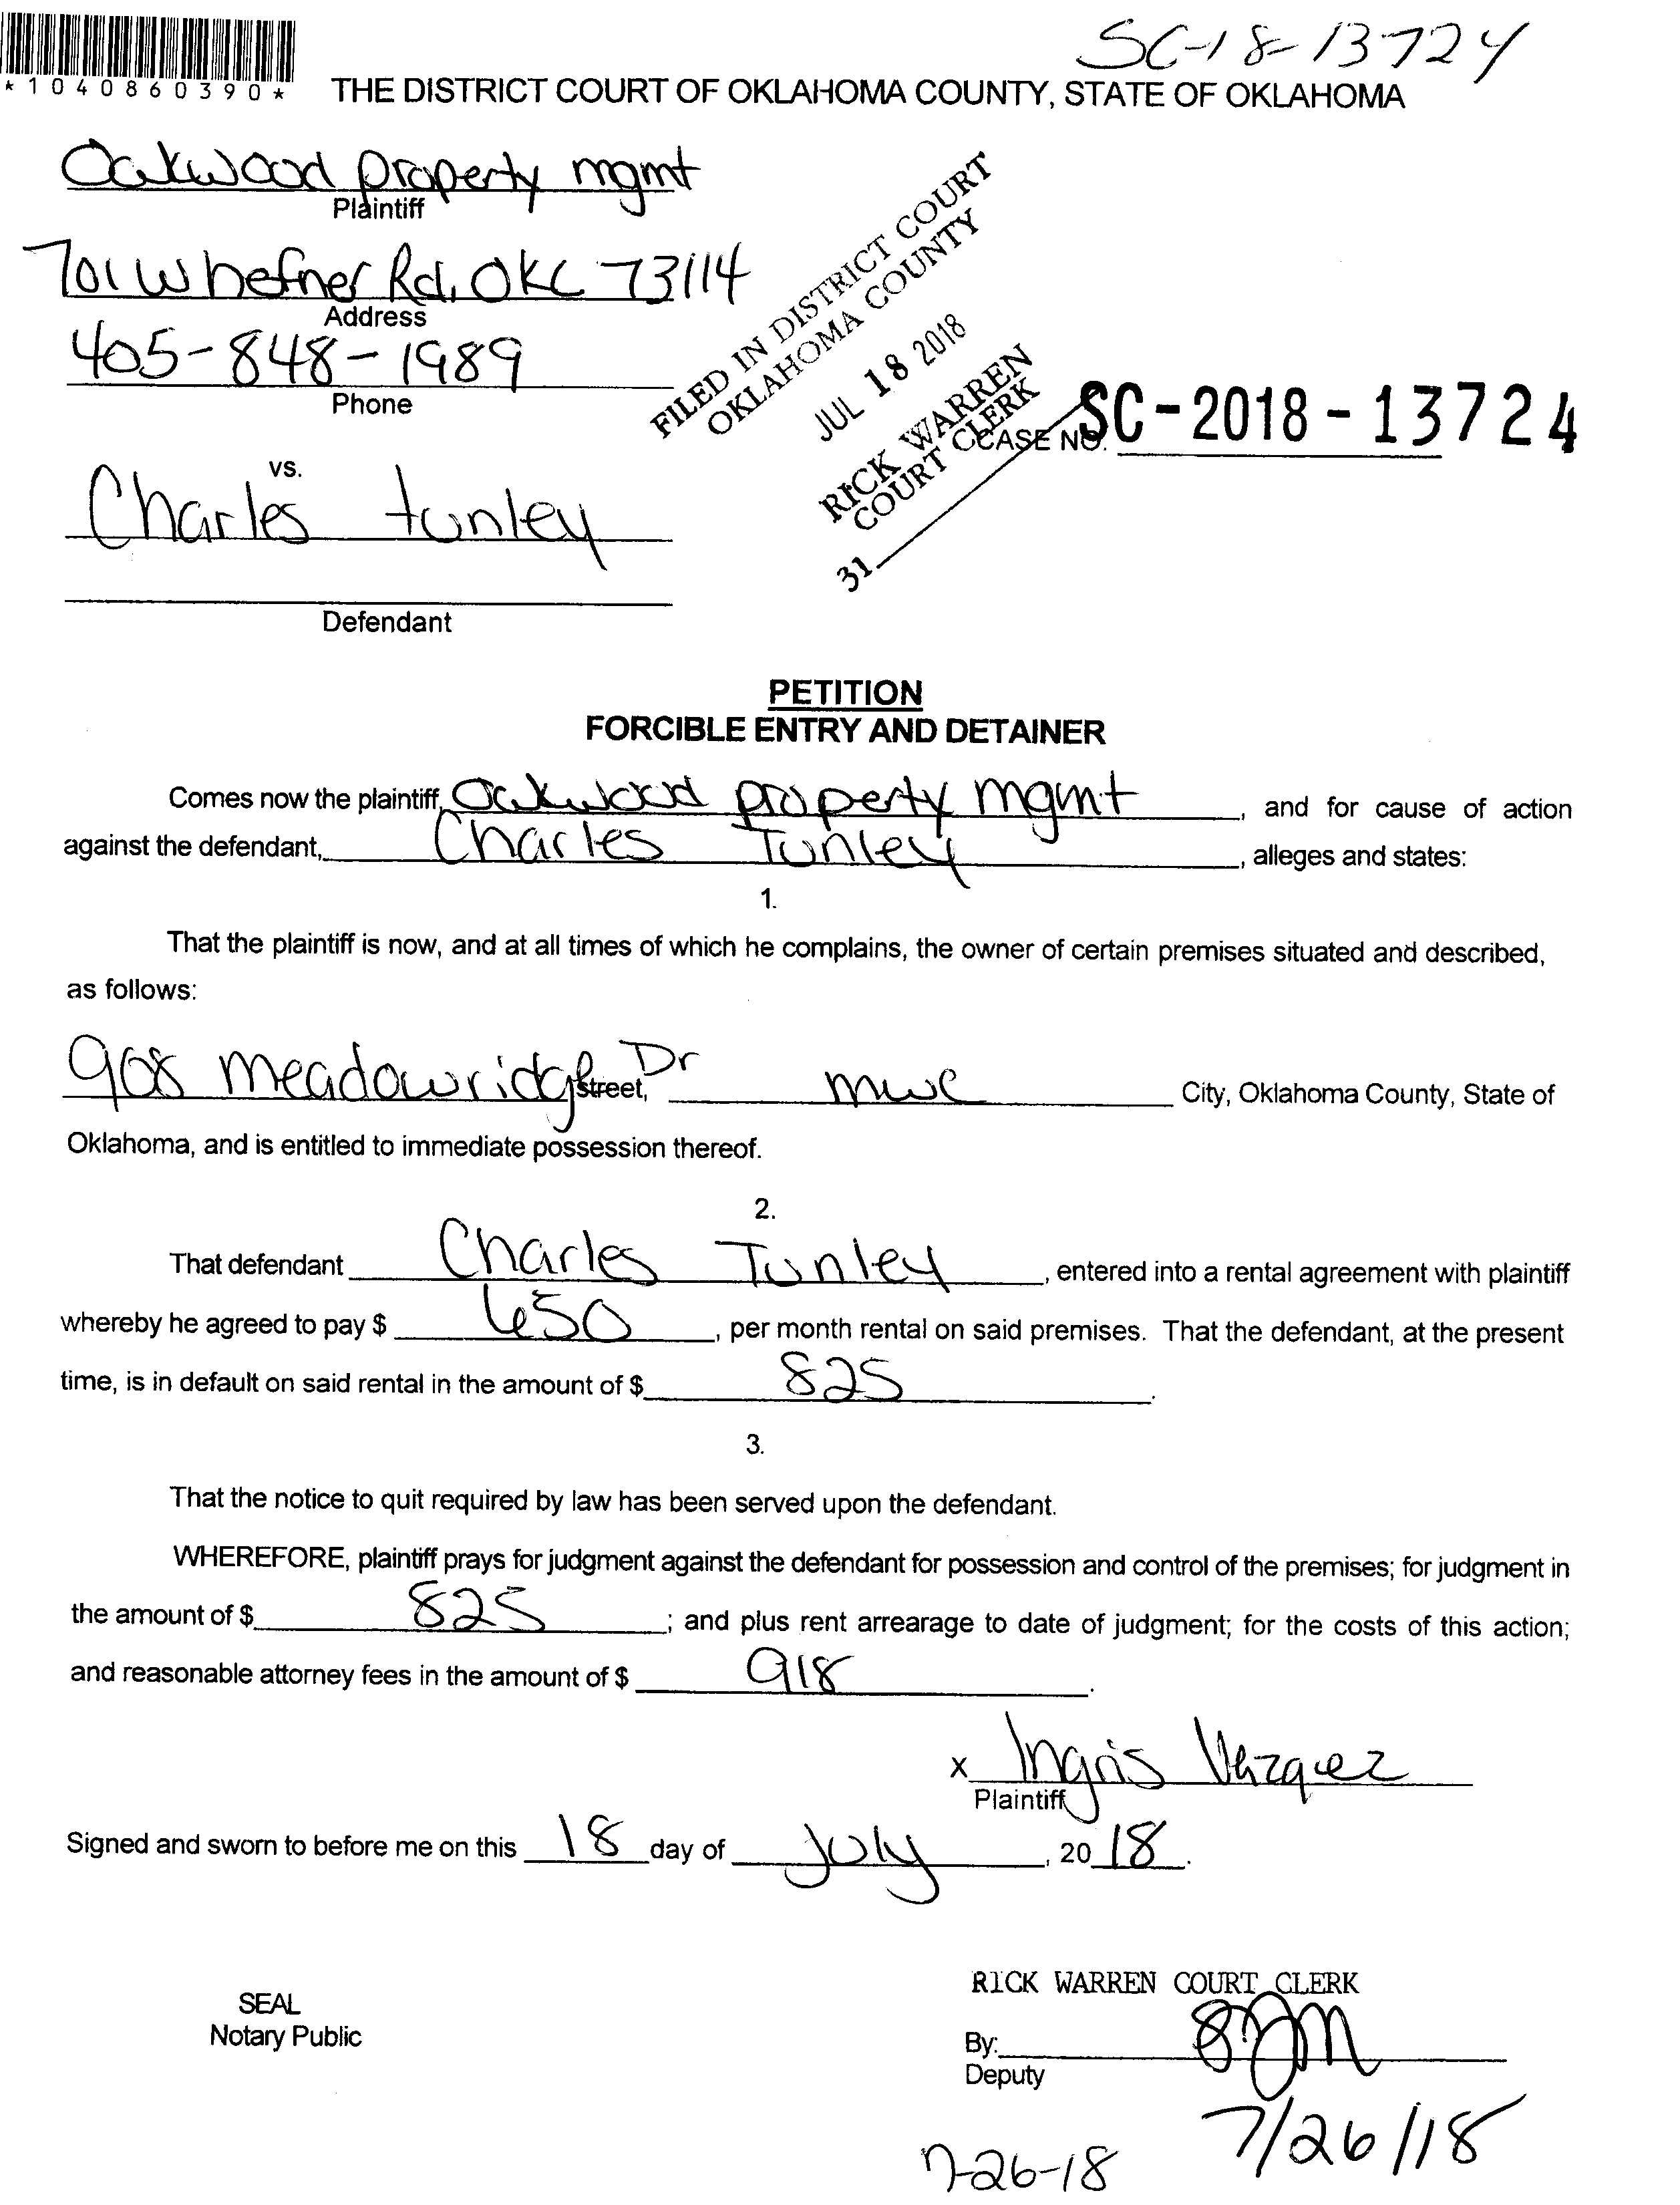 SC-18-13724
*1040860390*
THE DISTRICT COURT OF OKLAHOMA COUNTY, STATE OF OKLAHOMA
Oakwood property mgmt
Plaintiff
701 W hefner Rd, OKC 73114
Address
405-848-1989
Phone
FILED IN DISTRICT COURT
OKLAHOMA COUNTY
JUL 18 2018
RICK WARREN
COURT CLERK
31
CASE NO. SC-2018-13724
vs.
Charles tunley
Defendant
PETITION
FORCIBLE ENTRY AND DETAINER
Comes now the plaintiff, Oakwood property mgmt, and for cause of action
against the defendant, Charles Tunley, alleges and states:
1.
That the plaintiff is now, and at all times of which he complains, the owner of certain premises situated and described,
as follows:
908 meadowridge Dr Street, mwc City, Oklahoma County, State of
Oklahoma, and is entitled to immediate possession thereof.
2.
That defendant Charles Tunley, entered into a rental agreement with plaintiff
whereby he agreed to pay $ 650, per month rental on said premises. That the defendant, at the present
time, is in default on said rental in the amount of $ 825.
3.
That the notice to quit required by law has been served upon the defendant.
WHEREFORE, plaintiff prays for judgment against the defendant for possession and control of the premises; for judgment in
the amount of $ 825; and plus rent arrearage to date of judgment; for the costs of this action;
and reasonable attorney fees in the amount of $ 918.
x Ingris Vazquez
Plaintiff
Signed and sworn to before me on this 18 day of July, 2018.
RICK WARREN COURT CLERK
SEAL
Notary Public
By:
Deputy
7/26/18
7-26-18